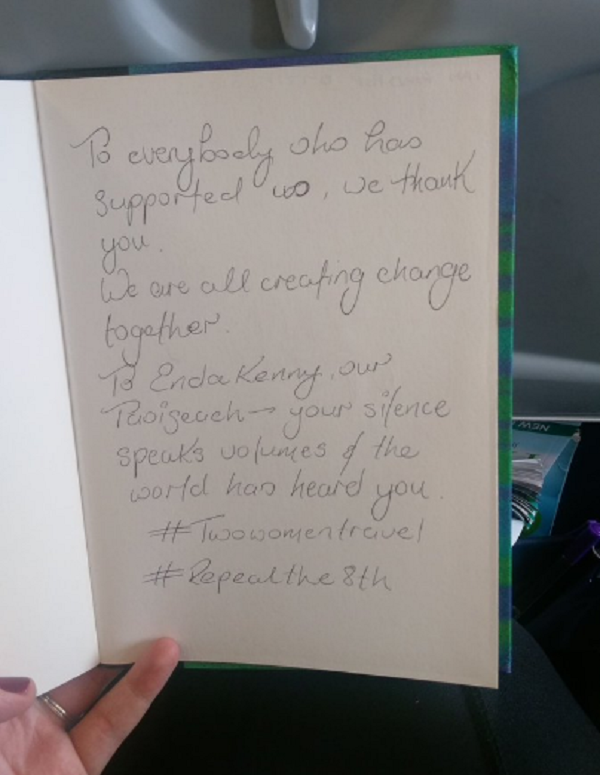 To everybody who has
supported us, we thank
you.
We are all creating change
together.
To Enda Kenny, our
Taoiseach → your silence
speaks volumes & the
world has heard you.
#Twowomentravel
#Repealthe8th
NEW